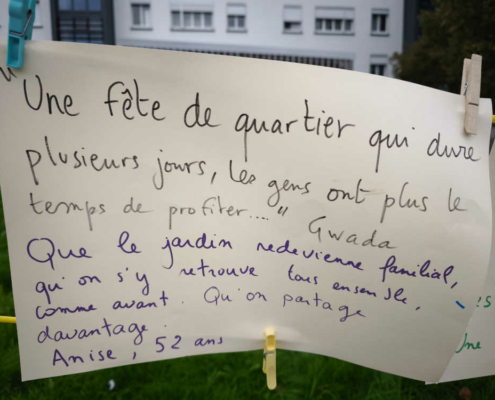 "Une fête de quartier qui dure
plusieurs jours, les gens ont plus le
temps de profiter...."
Gwada
Que le jardin redevienne familial,
qu'on s'y retrouve tous ensemble,
comme avant. Qu'on partage
davantage.
Anise, 52 ans
es
Une